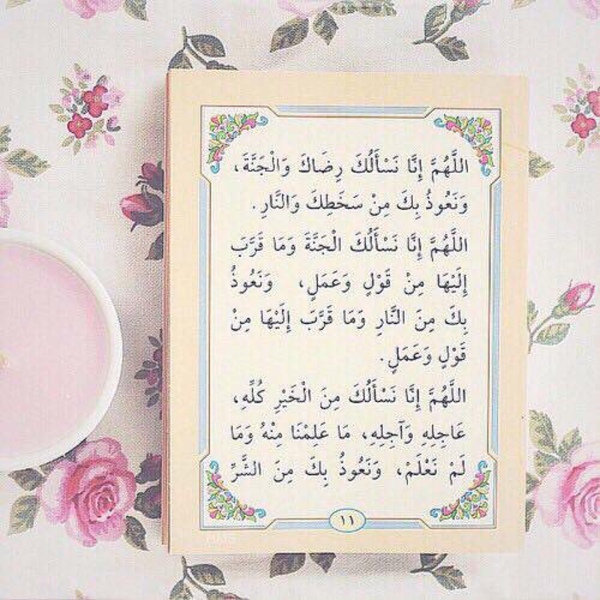 اللَّهُمَّ إِنَّا نَسْأَلُكَ رِضَاكَ وَالْجَنَّةَ،
وَنَعُوذُ بِكَ مِنْ سَخَطِكَ وَالنَّارِ.
اللَّهُمَّ إِنَّا نَسْأَلُكَ الْجَنَّةَ وَمَا قَرَّبَ
إِلَيْهَا مِنْ قَوْلٍ وَعَمَلٍ، وَنَعُوذُ
بِكَ مِنَ النَّارِ وَمَا قَرَّبَ إِلَيْهَا مِنْ
قَوْلٍ وَعَمَلٍ.
اللَّهُمَّ إِنَّا نَسْأَلُكَ مِنَ الْخَيْرِ كُلِّهِ،
عَاجِلِهِ وَآجِلِهِ، مَا عَلِمْنَا مِنْهُ وَمَا
لَمْ نَعْلَمْ، وَنَعُوذُ بِكَ مِنَ الشَّرِّ
١١